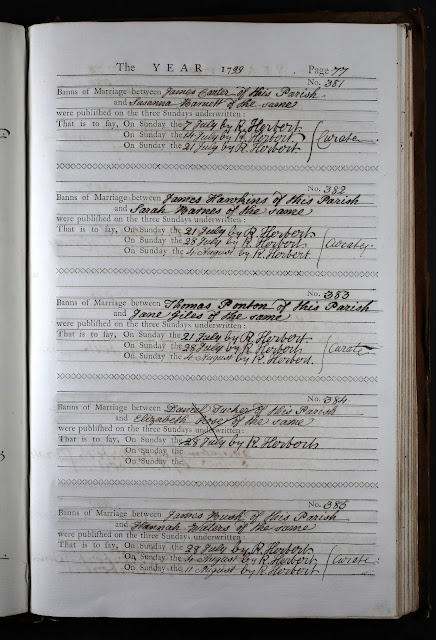 The YEAR 1799 Page 77
No. 381
Banns of Marriage between James Carter of this Parish
and Susanna Barnett of the same
were publiſhed on the three Sundays underwritten:
That is to ſay, On Sunday the 7 July by R. Herbert
On Sunday the 14 July by R. Herbert Curate
On Sunday the 21 July by R. Herbert
No. 382
Banns of Marriage between James Hawkins of this Parish
and Sarah Barnes of the same
were publiſhed on the three Sundays underwritten:
That is to ſay, On Sunday the 21 July by R. Herbert
On Sunday the 28 July by R. Herbert
On Sunday the 4 August by R. Herbert
No. 383
Banns of Marriage between Thomas Ponton of this Parish
and Jane Giles of the same
were publiſhed on the three Sundays underwritten:
That is to ſay, On Sunday the 21 July by R. Herbert
On Sunday the 28 July by R. Herbert Curate
On Sunday the 4 August by R. Herbert
No. 384
Banns of Marriage between Daniel Tucker of this Parish
and Elizabeth Rose of the same
were publiſhed on the three Sundays underwritten:
That is to ſay, On Sunday the 28 July by R. Herbert
On Sunday the
On Sunday the
No. 385
Banns of Marriage between James Bush of this Parish
and Hannah Waters of the same
were publiſhed on the three Sundays underwritten:
That is to ſay, On Sunday the July by R. Herbert
On Sunday the 4 August by R. Herbert Curate
On Sunday the 11 August by R. Herbert